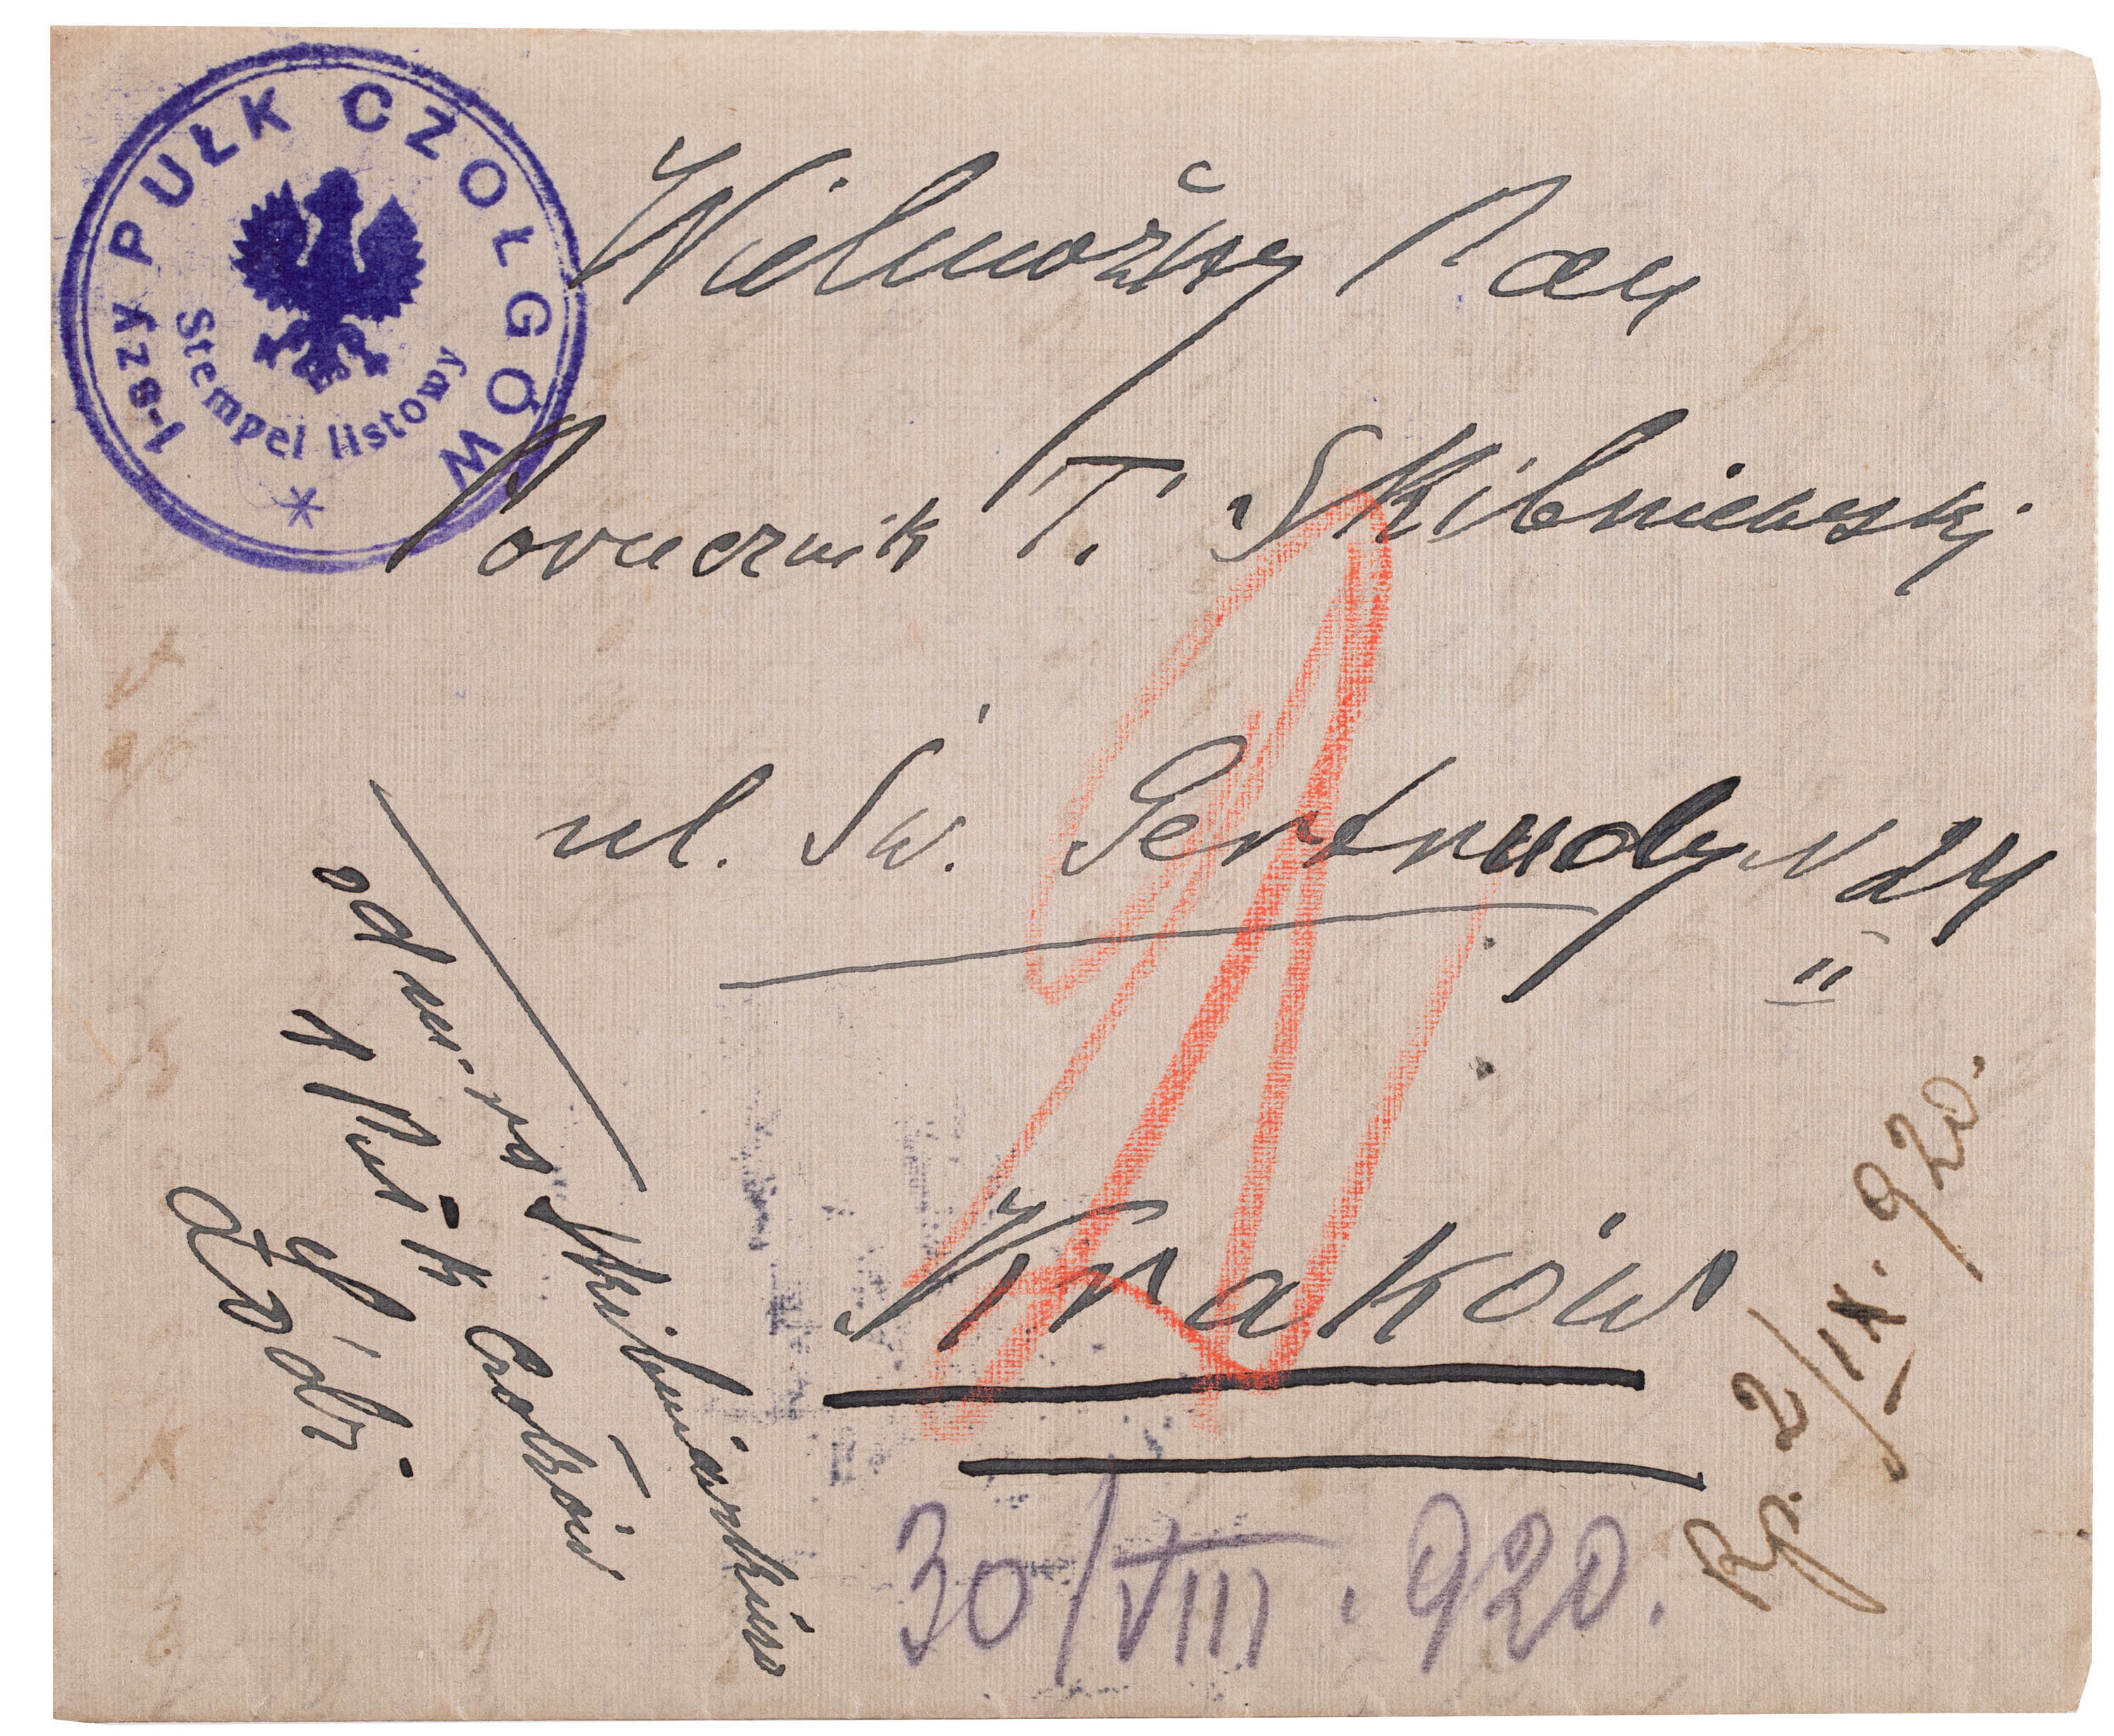 1-szy PUŁK CZOŁGÓW
Stempel listowy
Wielmożny Pan
Porucznik T. Skibniewski
ul. Św. Gertrudy N 24
II
Kraków
od
1 Pułk Czołgów
Łódź.
30/VIII. 920.
Rp. 2/IX. 920.